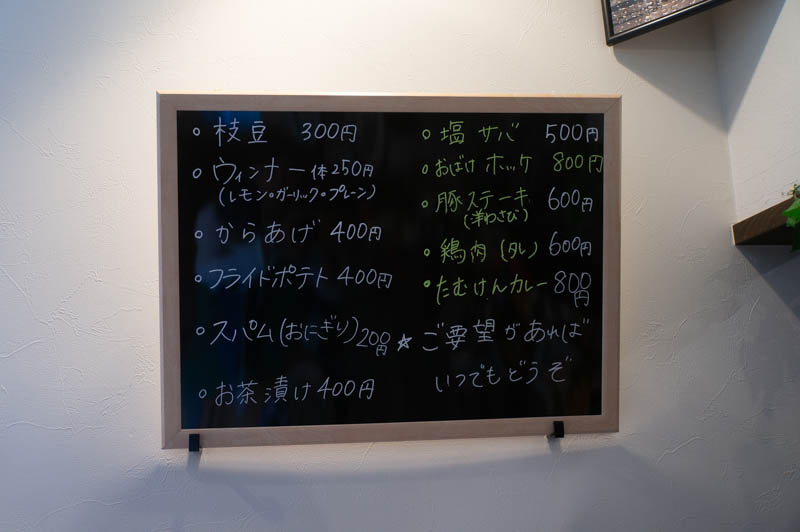 ○ 枝豆 300円
○ ウィンナー 一体250円
(レモン○ガーリック○プレーン)
○ からあげ 400円
○ フライドポテト 400円
○ スパム(おにぎり)200円
○ お茶漬け 400円
○ 塩サバ 500円
○ おばけホッケ 800円
○ 豚ステーキ 600円
(洋わさび)
○ 鶏肉(タレ) 600円
○ たむけんカレー 800円
☆ ご要望があれば
いつでもどうぞ